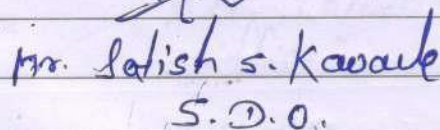 Mr. Satish S. Kavale
S.D.O.